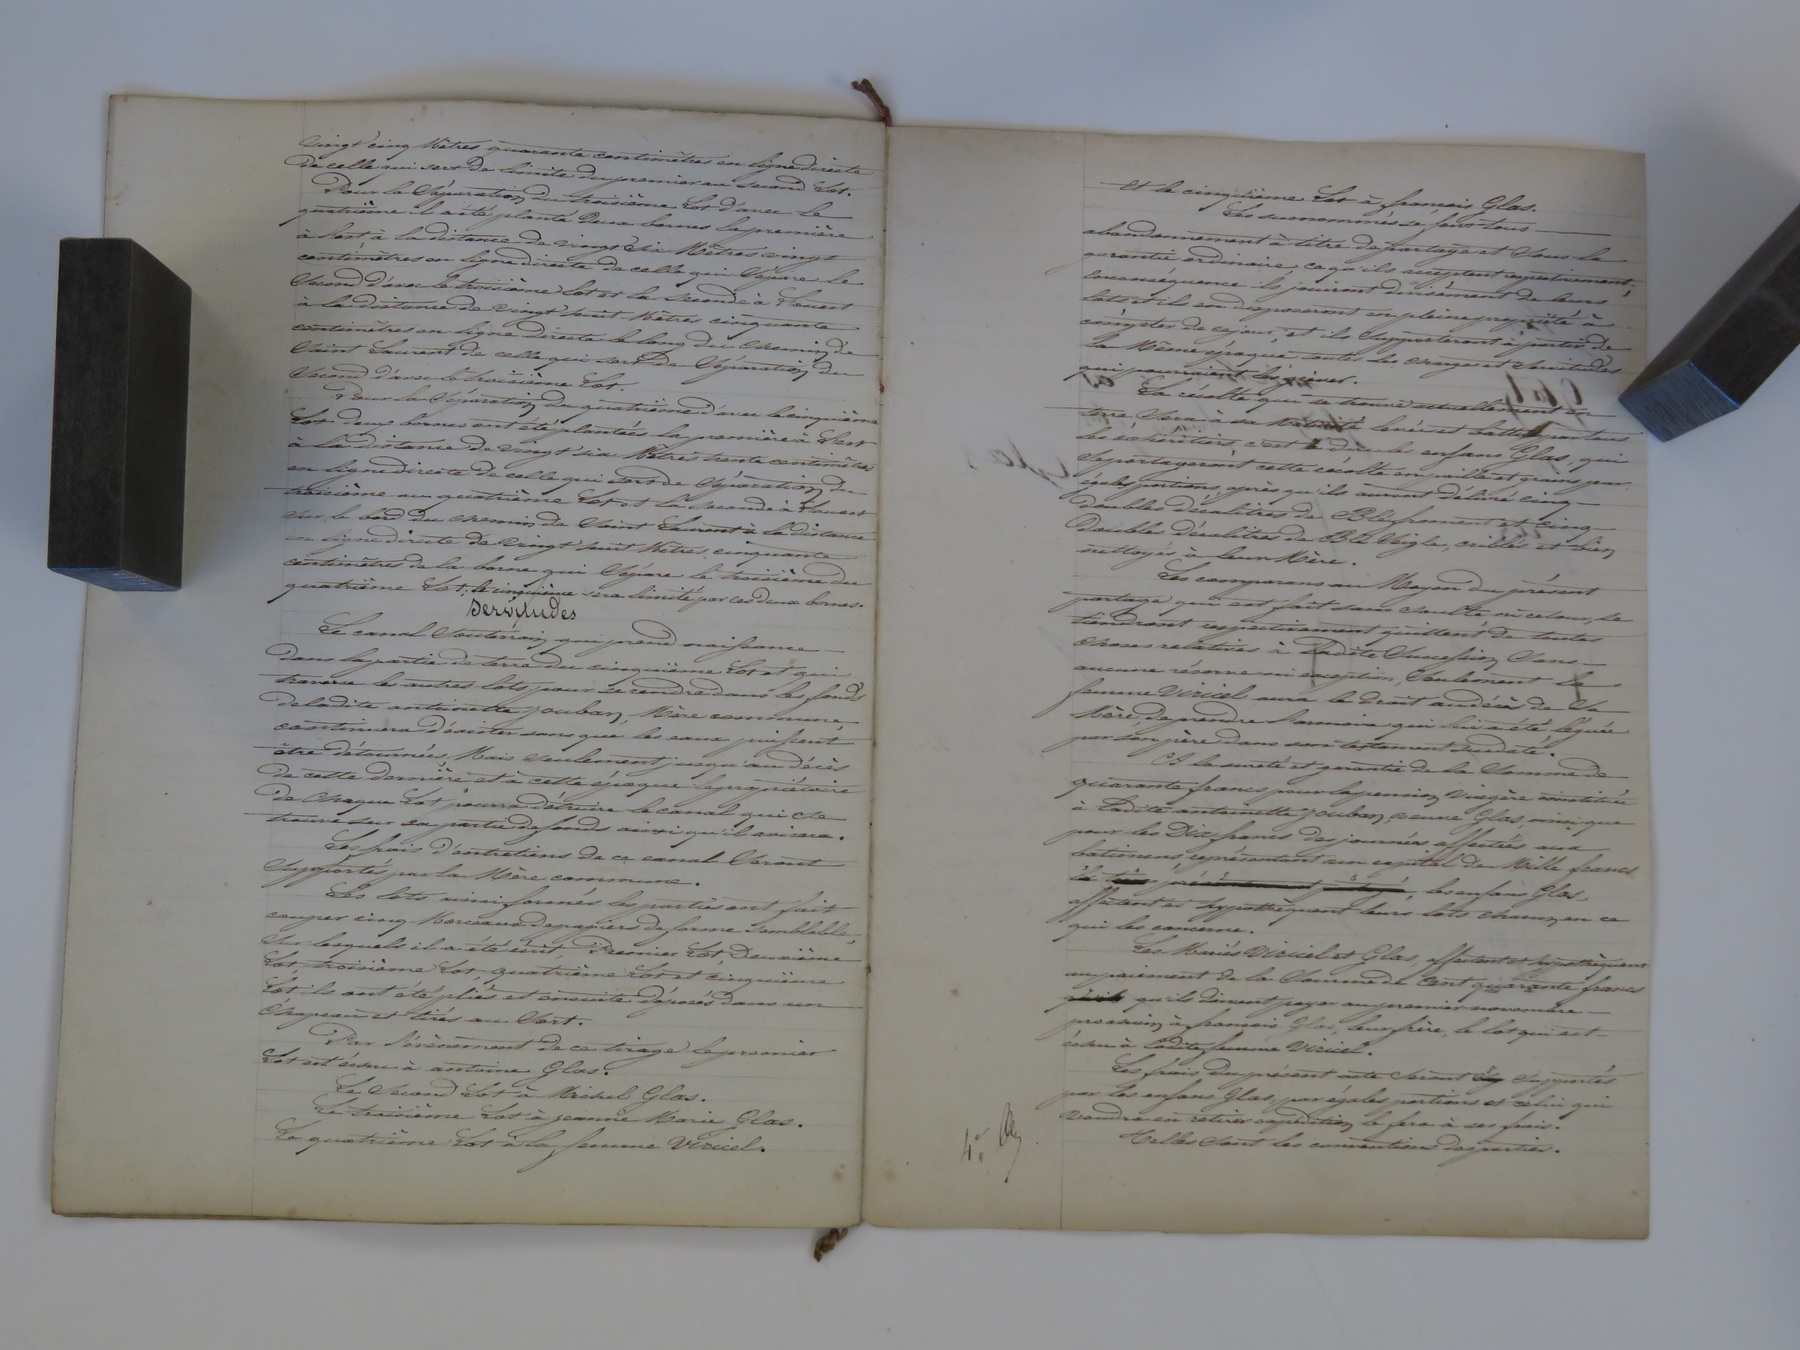 vingt cinq Mètres quarante centimètres en ligne directe
de celle qui sert de limite du premier au second Lot.
Pour la Séparation du troisième Lot d'avec le
quatrième il a été planté Deux bornes la première
à l'est à la distance de vingt six Mètres vingt
centimètres en ligne directe de celle qui Sépare le
Second d'avec le troisième Lot et la seconde à l'ouest
à la distance de vingt huit Mètres cinquante
centimètres en ligne directe le long du chemin de
Saint Laurent de celle qui sert de Séparation du
second d'avec le troisième Lot.
Pour la Séparation du quatrième d'avec le cinquième
Lot deux bornes ont été plantées la première à l'est
à la distance de vingt six Mètres trente centimètres
en ligne directe de celle qui sert de Séparation du
troisième au quatrième Lot et la seconde à l'ouest
sur le bord du chemin de Saint Laurent à la distance
en ligne directe de vingt huit Mètres, cinquante
centimètres de la borne qui Sépare le troisième du
quatrième Lot, le cinquième sera limité par ces deux bornes.
Servitudes
Le canal Souterrain qui prend naissance
dans la partie de terre du cinquième Lot et qui
traverse les autres lots pour se rendre dans les fonds
de ladite antoinette Jouban, Mère commune
continuera d'exister sans que les eaux puissent
être détournées, Mais seulement jusqu'au décès
de cette dernière et à cette époque le propriétaire
de chaque Lot pourra détruire le canal qui se
trouve sur sa partie de fonds ainsi qu'il avisera.
Les frais d'entretiens de ce canal Seront
Supportés par la Mère commune.
Les lots ainsi formés les parties ont fait
couper cinq Morceaux de papiers de forme Semblable,
Sur lesquels il a été écrit, Premier Lot, Deuxième
Lot, troisième Lot, quatrième Lot et cinquième
Lot, ils ont été pliés et ensuite déposés dans un
chapeau et tirés au Sort.
Par l'évènement de ce tirage le premier
Lot est échu à antoine Glas.
Le Second Lot à Michel Glas.
Le troisième Lot à jeanne Marie Glas.
Le quatrième Lot à la femme Viricel.
Et le cinquième Lot à françois Glas.
Les surnommés se font tous
abandonnement à titre de partage et Sous la
garantie ordinaire, ce qu'ils acceptent respectivement,
En conséquence ils jouiront divisément de leurs
lots et ils en disposeront en pleine propriété à
compter de ce jour, et ils Supporteront à partir de
la Même époque toutes les charges et Servitudes
qui pourraient les grever.
La récolte qui se trouve actuellement en
terre Sera à sa Maturité levée et battue par tous
les cohéritiers c'est à dire les enfans Glas, qui
Se partageront cette récolte en paille et grains par
égales portions après qu'ils auront délivré cinq
doubles décalitres de Blé froment et cinq
doubles décalitres de Blé Seigle, criblés et bien
nettoyés à leur Mère.
Les comparans au Moyen du présent
partage qui est fait sans soulte ni retour, se
tiendront respectivement quittent de toutes
choses relatives à Ladite Succession Sans
aucune réserve ni exception, Seulement la
femme Viricel aura le droit au décès de Sa
Mère, de prendre l'armoire qui lui a été léguée
par son père dans son testament précité.
A la sureté et garantie de la Somme de
quarante francs pour la pension Viagère constituée
à Ladite antoinette Jouban veuve Glas, ainsi que
pour les Dix francs des journées affectées aux
batimens, représentant un capital de Mille francs
les enfans Glas,
affectent et hypothèquent leurs lots chacun en ce
qui les concerne.
Les Mariés Viricel et Glas, affectent et hypothèquent
au paiement de la Somme de Cent quarante francs
qu'ils doivent payer au premier novembre
prochain à françois Glas, leur frère, le lot qui est
échu à Ladite femme Viricel.
Les frais du présent acte Seront Supportés
par les enfans Glas par égales portions et celui qui
voudra en retirer expédition le fera à ses frais.
Telles Sont les conventions des parties.